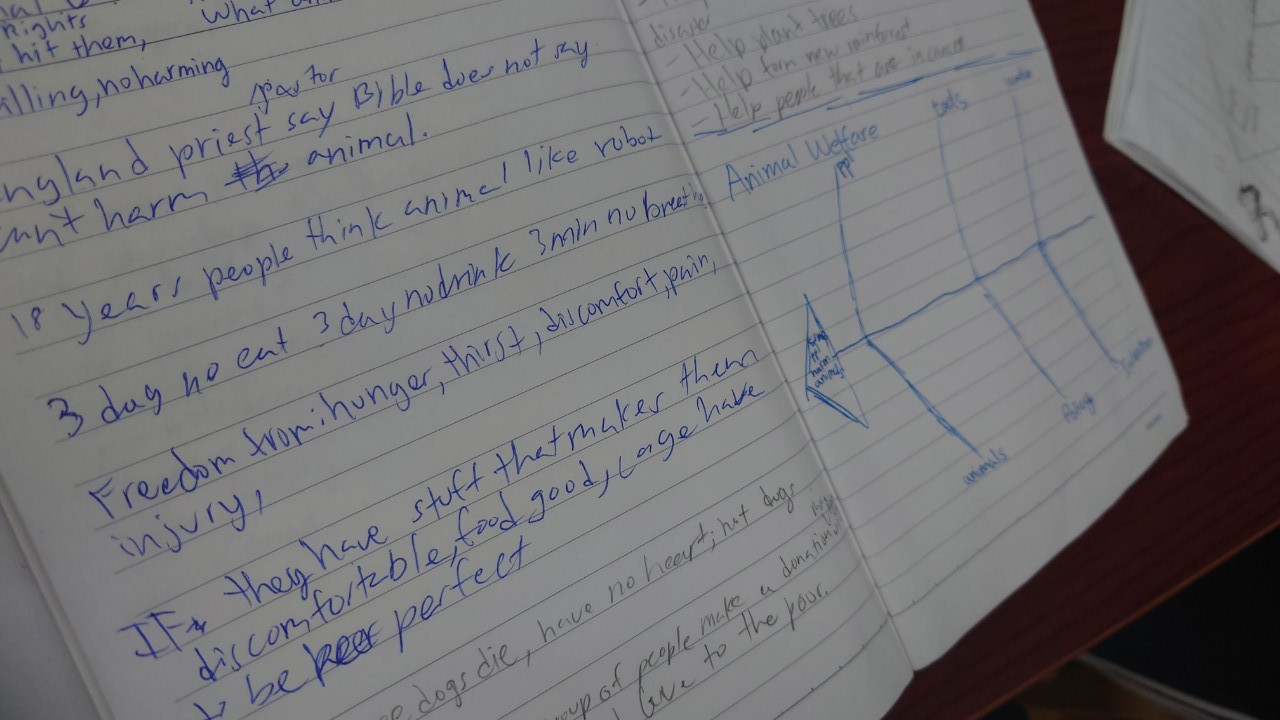 rights
What
hit them,
illing, no harming
pastor
ngland priest say Bible does not say
an't harm animal.
18 years people think animal like robot
3 day no eat 3 day no drink 3 min no breath
Freedom from: hunger, thirst, discomfort, pain,
injury,
IF they have stuff that makes them
discomfortable, food good, cage have
to be perfect
dogs die, have no heart; hut dogs
oup of people make a donation
Give to the pour.
disaster
- Help plant trees
- Help form new rainforest
- Help people that are in cancer
Animal Welfare
PPl
tools
animals
Policy
harm
animals
3